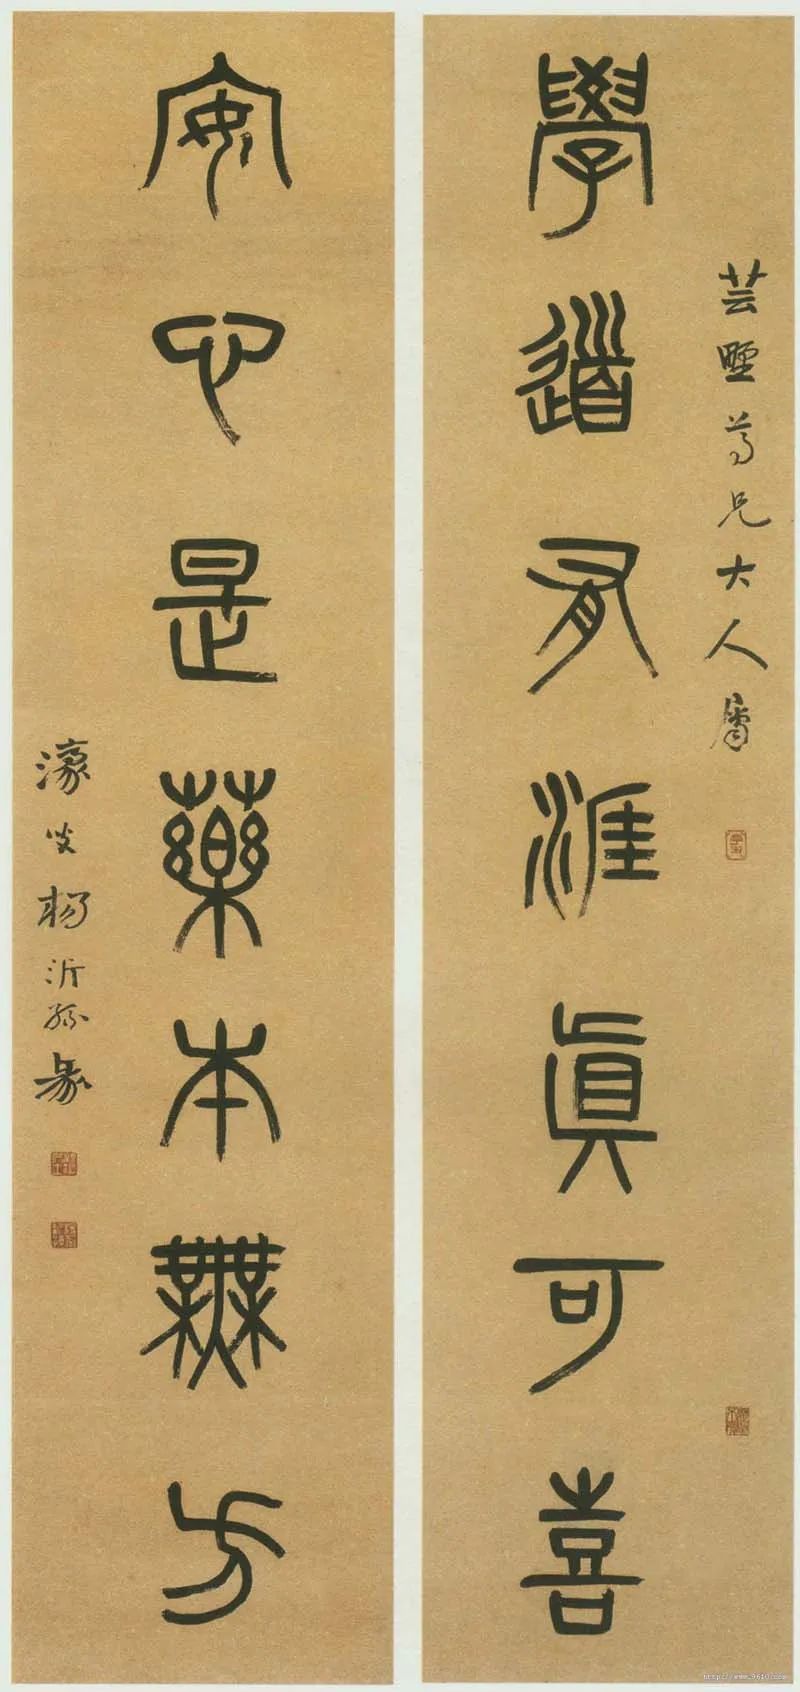 芸畦尊兄大人属
學道有淮真可喜
安心是藥本無方
濠叟楊沂孫篆
http://www.9610.com